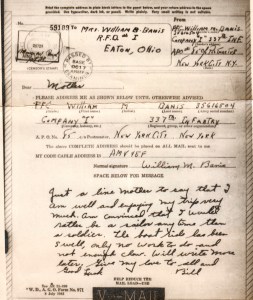 Print the complete address in plain block letters in the panel below, and your return address in the space
provided. Use typewriter, dark ink, or pencil. Write plainly. Very small writing is not suitable.
No. 59189
TO MRS. WILLIAM B. BANIS
R.F.D. # 1
EATON, OHIO
PFC. WILLIAM M. BANIS
Company "I" 337th Inf.
New York City N.Y.
PASSED BY
BASE
(CENSOR'S STAMP)
Dear Mother
PLEASE ADDRESS ME AS SHOWN BELOW UNTIL OTHERWISE ADVISED
PFC WILLIAM M BANIS
COMPANY "I" 337th INFANTRY
A. P. O. No. c/o Postmaster NEW YORK CITY, NEW YORK
The above COMPLETE ADDRESS should be placed on ALL MAIL sent to me
MY CODE CABLE ADDRESS IS
Normal signature William M. Banis
SPACE BELOW FOR MESSAGE
Just a line Mother to say that I
am well and enjoying my trip very
much. Am convinced that I would
rather be a sailor any time than
a soldier. The boat ride has been
swell, only no work to do and
not enough chow. Will write more
later. Give my love to all and
Good Luck Bill
HELP REDUCE THE
MAIL BURDEN—USE
W. D., A. G. O. Form No.
V-MAIL